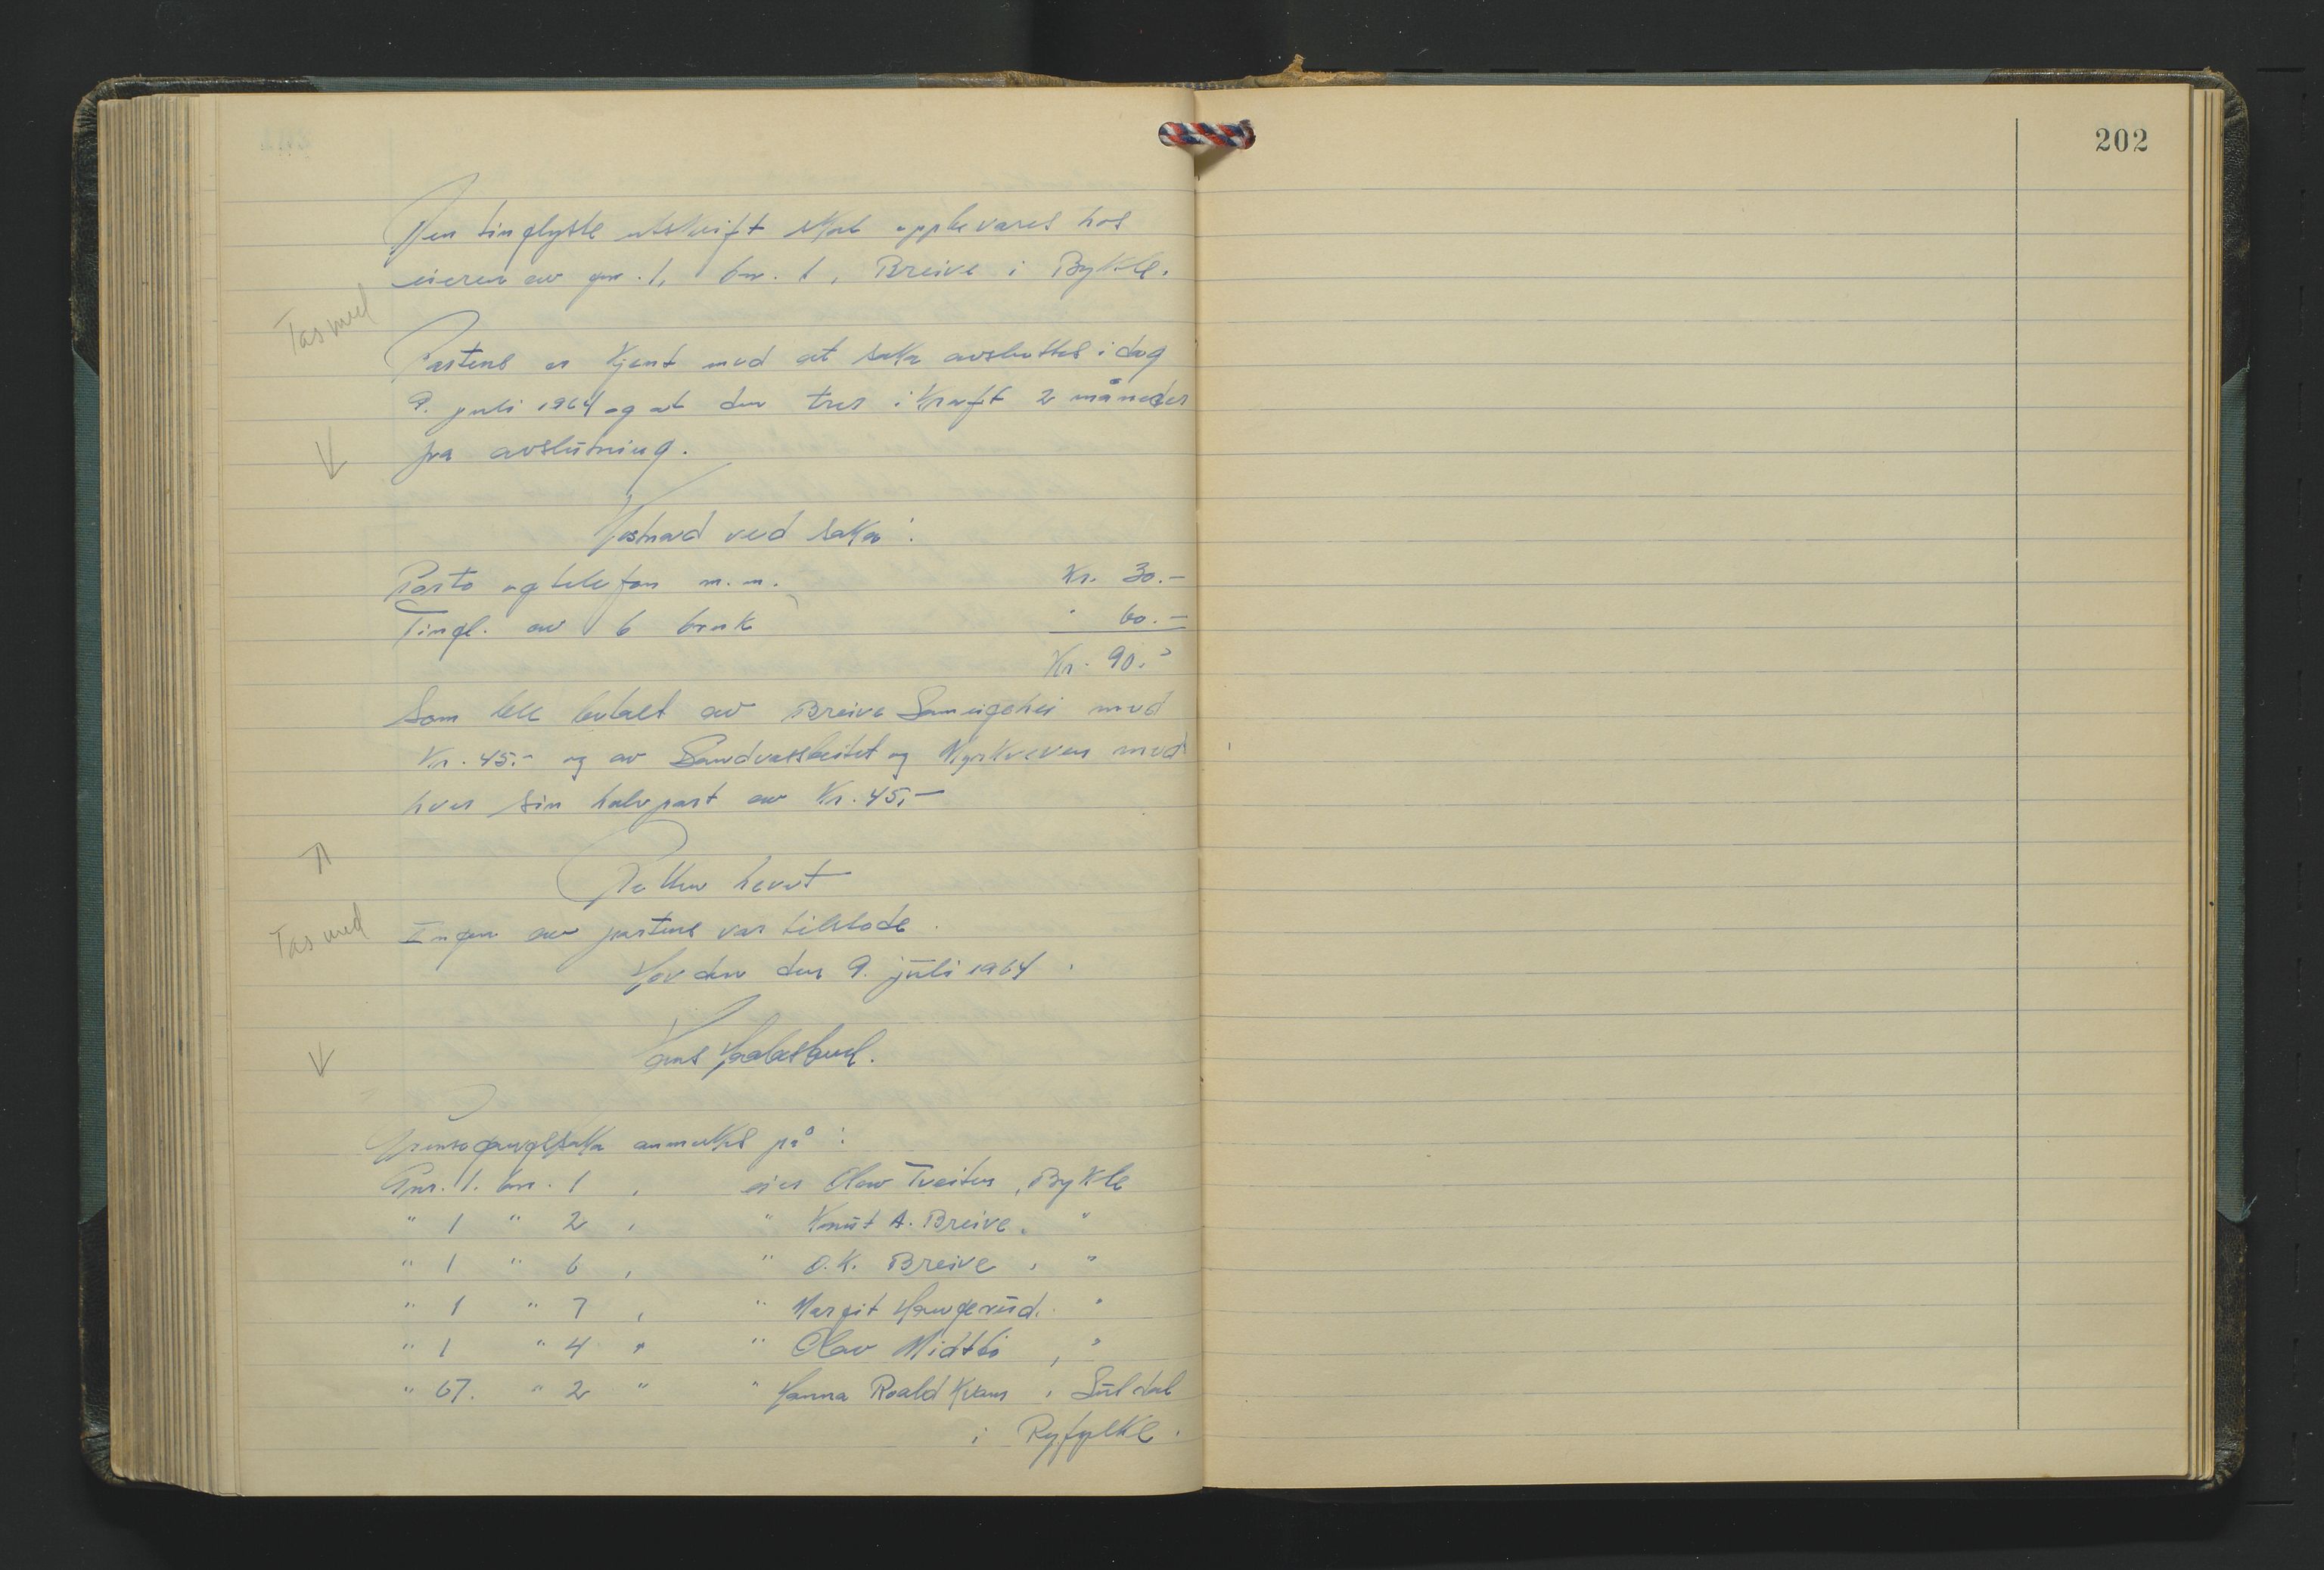 202
Den tinglyste utskrift skal oppbevares hos
eieren av gnr. 1, bnr. 1, Breive i Bykle.
Tas med
Partene er kjent med at saka avsluttes i dag
9. juli 1964 og at den trer i kraft 2 måneder
fra avslutning.
Kostnad ved saka:
Porto og telefon m.m. Kr. 30.-
Tingl. av 6 bruk " 60.-
Kr. 90.-
Som ble betalt av Breive Sameigehei med
Kr. 45.- og av Sandvassbeitet og Kyrkveven med
hver sin halvpart av Kr. 45,-
Retten hevet
Tas med
Ingen av partene var tilstode.
Hovden den 9. juli 1964.
Grensegangssaka anmerkes på:
Gnr. 1. bnr. 1, eier Olav Tveiten, Bykle
" 1 " 2, " Knut A. Breive. "
" 1 " 6, " O.K. Breive, "
" 1 " 7, " Margit Haugerud. "
" 1 " 4 " " Olav Midtbö, "
" 67. " 2 " " Hanna Roald Kvam, Suldal
i Ryfylke.